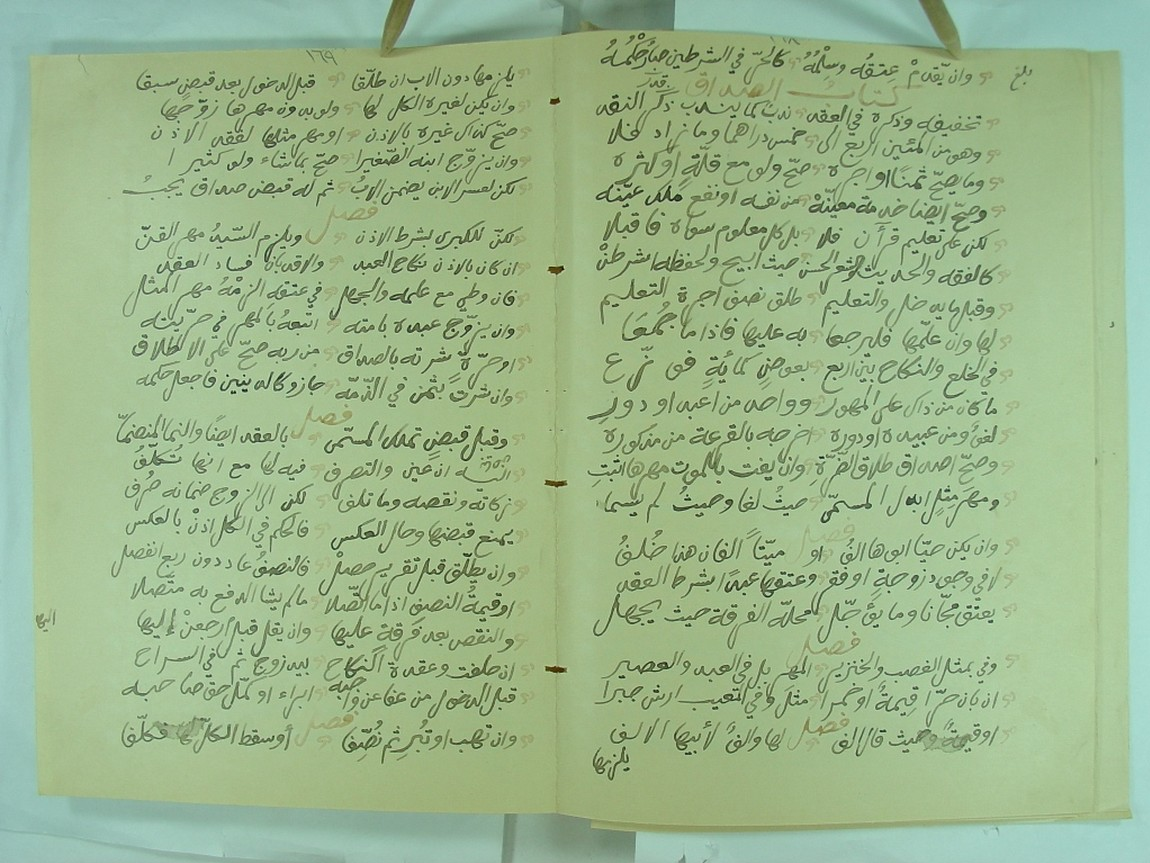 بلغ
وان يقدم عتقه وسلمه كالحر في الشرطين
كتاب الصداق
تخفيفه وذكره في العقد ندب كما يندب ذكر النقد
وهو من المئين اربع الى خمس دراهما وما زاد فلا
وما يصح ثمنا او اجره صح ولو مع قلة او كثره
وصح ايضا خدمة معينه من نفسه او نفع ملك عينه
لكن على تعليم قرآن فلا بل كل معلوم سواه فاقبلا
كالفقه والحديث والشعر الحسن حيث ابيح ولحفظه اشرطن
وقبل ما يدخل والتعليم طلق نصف اجرة التعليم
لها وان علمها فليرجعا به عليها فاذا ما جمعا
في الخلع والنكاح بين اربع بعوض كمائة فوزع
ما كان من ذاك على المهور وواحد من اعبد او دور
لغو ومن عبيده او دوره اخرجه بالقرعة من مذكوره
وصح اصداق طلاق الضرة وان يفت بالموت مهرها اثبت
ومهر مثل ابدل المسمى حيث لغا وحيث لم يسما
فصل
وان يكن حيا ابوها الف او ميتا الفان هنا خلف
لا في وجود زوجة او فقد وعتقها عبدا بشرط العقد
يعتق مجانا وما يؤجل محله الفرقة حيث يجهل
فصل
وفي بمثل الغصب والخنزير المهر بل في العبد والعصير
ان بان حرا قيمة او خمرا مثل وفي المتعيب ارش جبرا
او قيمة وحيث قال الف لها والف لأبيها الالف
فصل
يلزمها
١٦٩
يلزمها دون الاب ان طلقا قبل الدخول بعد قبض سبقا
وان يكن لغيره الكل لها ولو بدون مهرها زوجها
صح كذاك غيره بالاذن او مهر مثلها لفقد الاذن
وان يزوج ابنه الصغيرا صح بما شاء ولو كثيرا
لكن لعسر الابن يضمن الاب ثم له قبض صداق يجب
فصل
لكن للكبرى بشرط الاذن ويلزم السيد مهر القن
ان كان بالاذن نكاح العبد والا فد بان فساد العقد
فان وطي مع علمه والجهل في عتقه الزمه مهر المثل
وان يزوج عبده بامته اتبعه بالمهر في حريته
او حرة شرته بالصداق من ربه صح على الاطلاق
وان شرت بثمن في الذمه جاز وكالدينين فاجعل حكمه
فصل
وقبل قبض تملك المسمى بالعقد ايضا والنما المنضما
ان عين والتصرف فيه لها مع انها تكلف
زكاته ونقصه وما تلف لكن الى الزوج ضمانه صرف
يمنع قبضها وحال العكس فالحكم في الكل اذن بالعكس
وان يطلق قبل تقرير حصل فالنصف عاد دون ربع انفصل
او قيمة النصف اذا ما اتصلا مالم يشا الدفع به متصلا
والنقص بعد فرقة عليها وان يقل قبل ارجعن إليها
اليها
ان حلفت وعقدة النكاح بيد زوج ثم في السراح
قبل الدخول من عفا عن واجبه ابراء او كمل حق صاحبه
فصل
وان تهب او تبر ثم نصفا او سقط الكل لها فكلفا